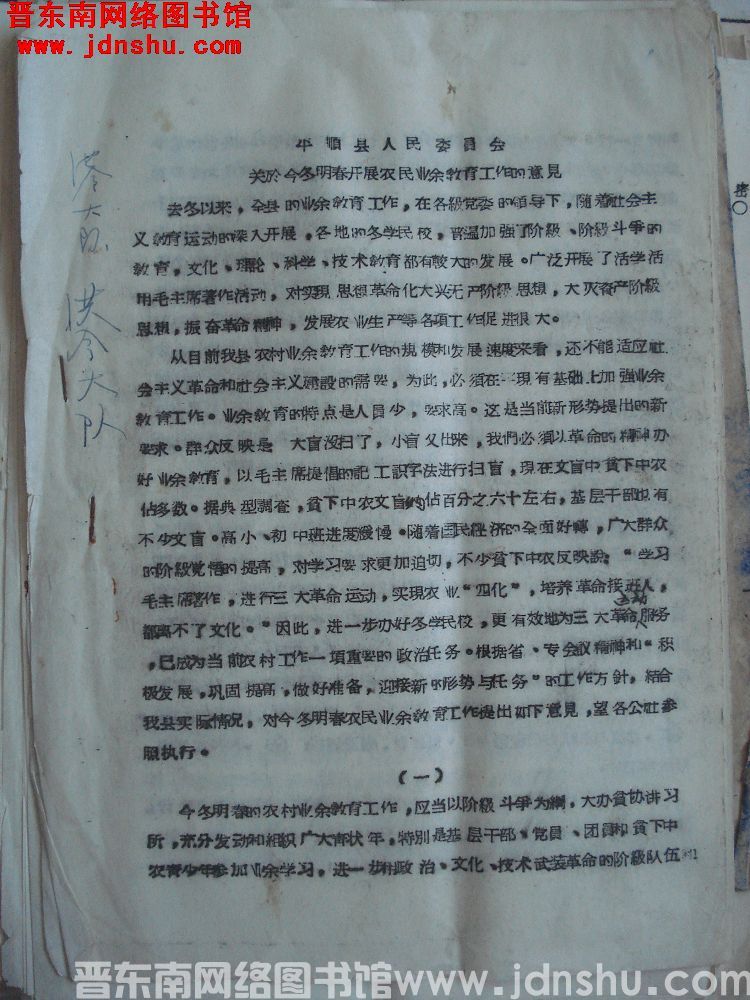 晋东南网络图书馆
www.jdnshu.com
平順县人民委員会
关於今冬明春开展农民业余教育工作的意見
去冬以来，全县的业余教育工作，在各級党委的領导下，随着社会主
义教育运动的深入开展，各地的冬学民校，普遍加強了阶級、阶級斗爭的
教育，文化、理論、科学、技术教育都有較大的发展。广泛开展了活学活
用毛主席著作活动，对实現思想革命化大兴无产阶級思想，大灭資产阶級
思想，振奋革命精神，发展农业生产等各項工作促进很大。
从目前我县农村业余教育工作的規模和发展速度来看，还不能适应社
会主义革命和社会主义建設的需要，为此，必須在現有基础上加強业余
教育工作。业余教育的特点是人員少，要求高。这是当前新形势提出的新
要求。群众反映是 大盲沒扫了，小盲又出来，我們必須以革命的精神办
好业余教育，以毛主席提倡的記工識字法进行扫盲，現在文盲中貧下中农
佔多数。据典型調查，貧下中农文盲約佔百分之六十左右，基层干部也有
不少文盲。高小、初中班进度緩慢。随着国民經济的全面好轉，广大群众
的阶級覚悟的提高，对学习要求更加迫切，不少貧下中农反映說："学习
毛主席著作，进行三大革命运动，实現农业"四化"，培养革命接班人，
都离不了文化。"因此，进一步办好冬学民校，更有效地为三大革命运动服务
，已成为当前农村工作一項重要的政治任务。根据省、专会議精神和"积
极发展，巩固提高，做好准备，迎接新的形势与任务"的工作方針，結合
我县实际情况，对今冬明春农民业余教育工作提出如下意見，望各公社参
照执行。
（一）
今冬明春的农村业余教育工作，应当以阶級斗爭为綱，大办貧协讲习
所，充分发动和組織广大青壮年，特別是基层干部、党員、团員和貧下中
农青少年参加业余学习，进一步用政治、文化、技术武装革命的阶級队伍
大队
大队
密〇
晋东南网络图书馆www.jdnshu.com